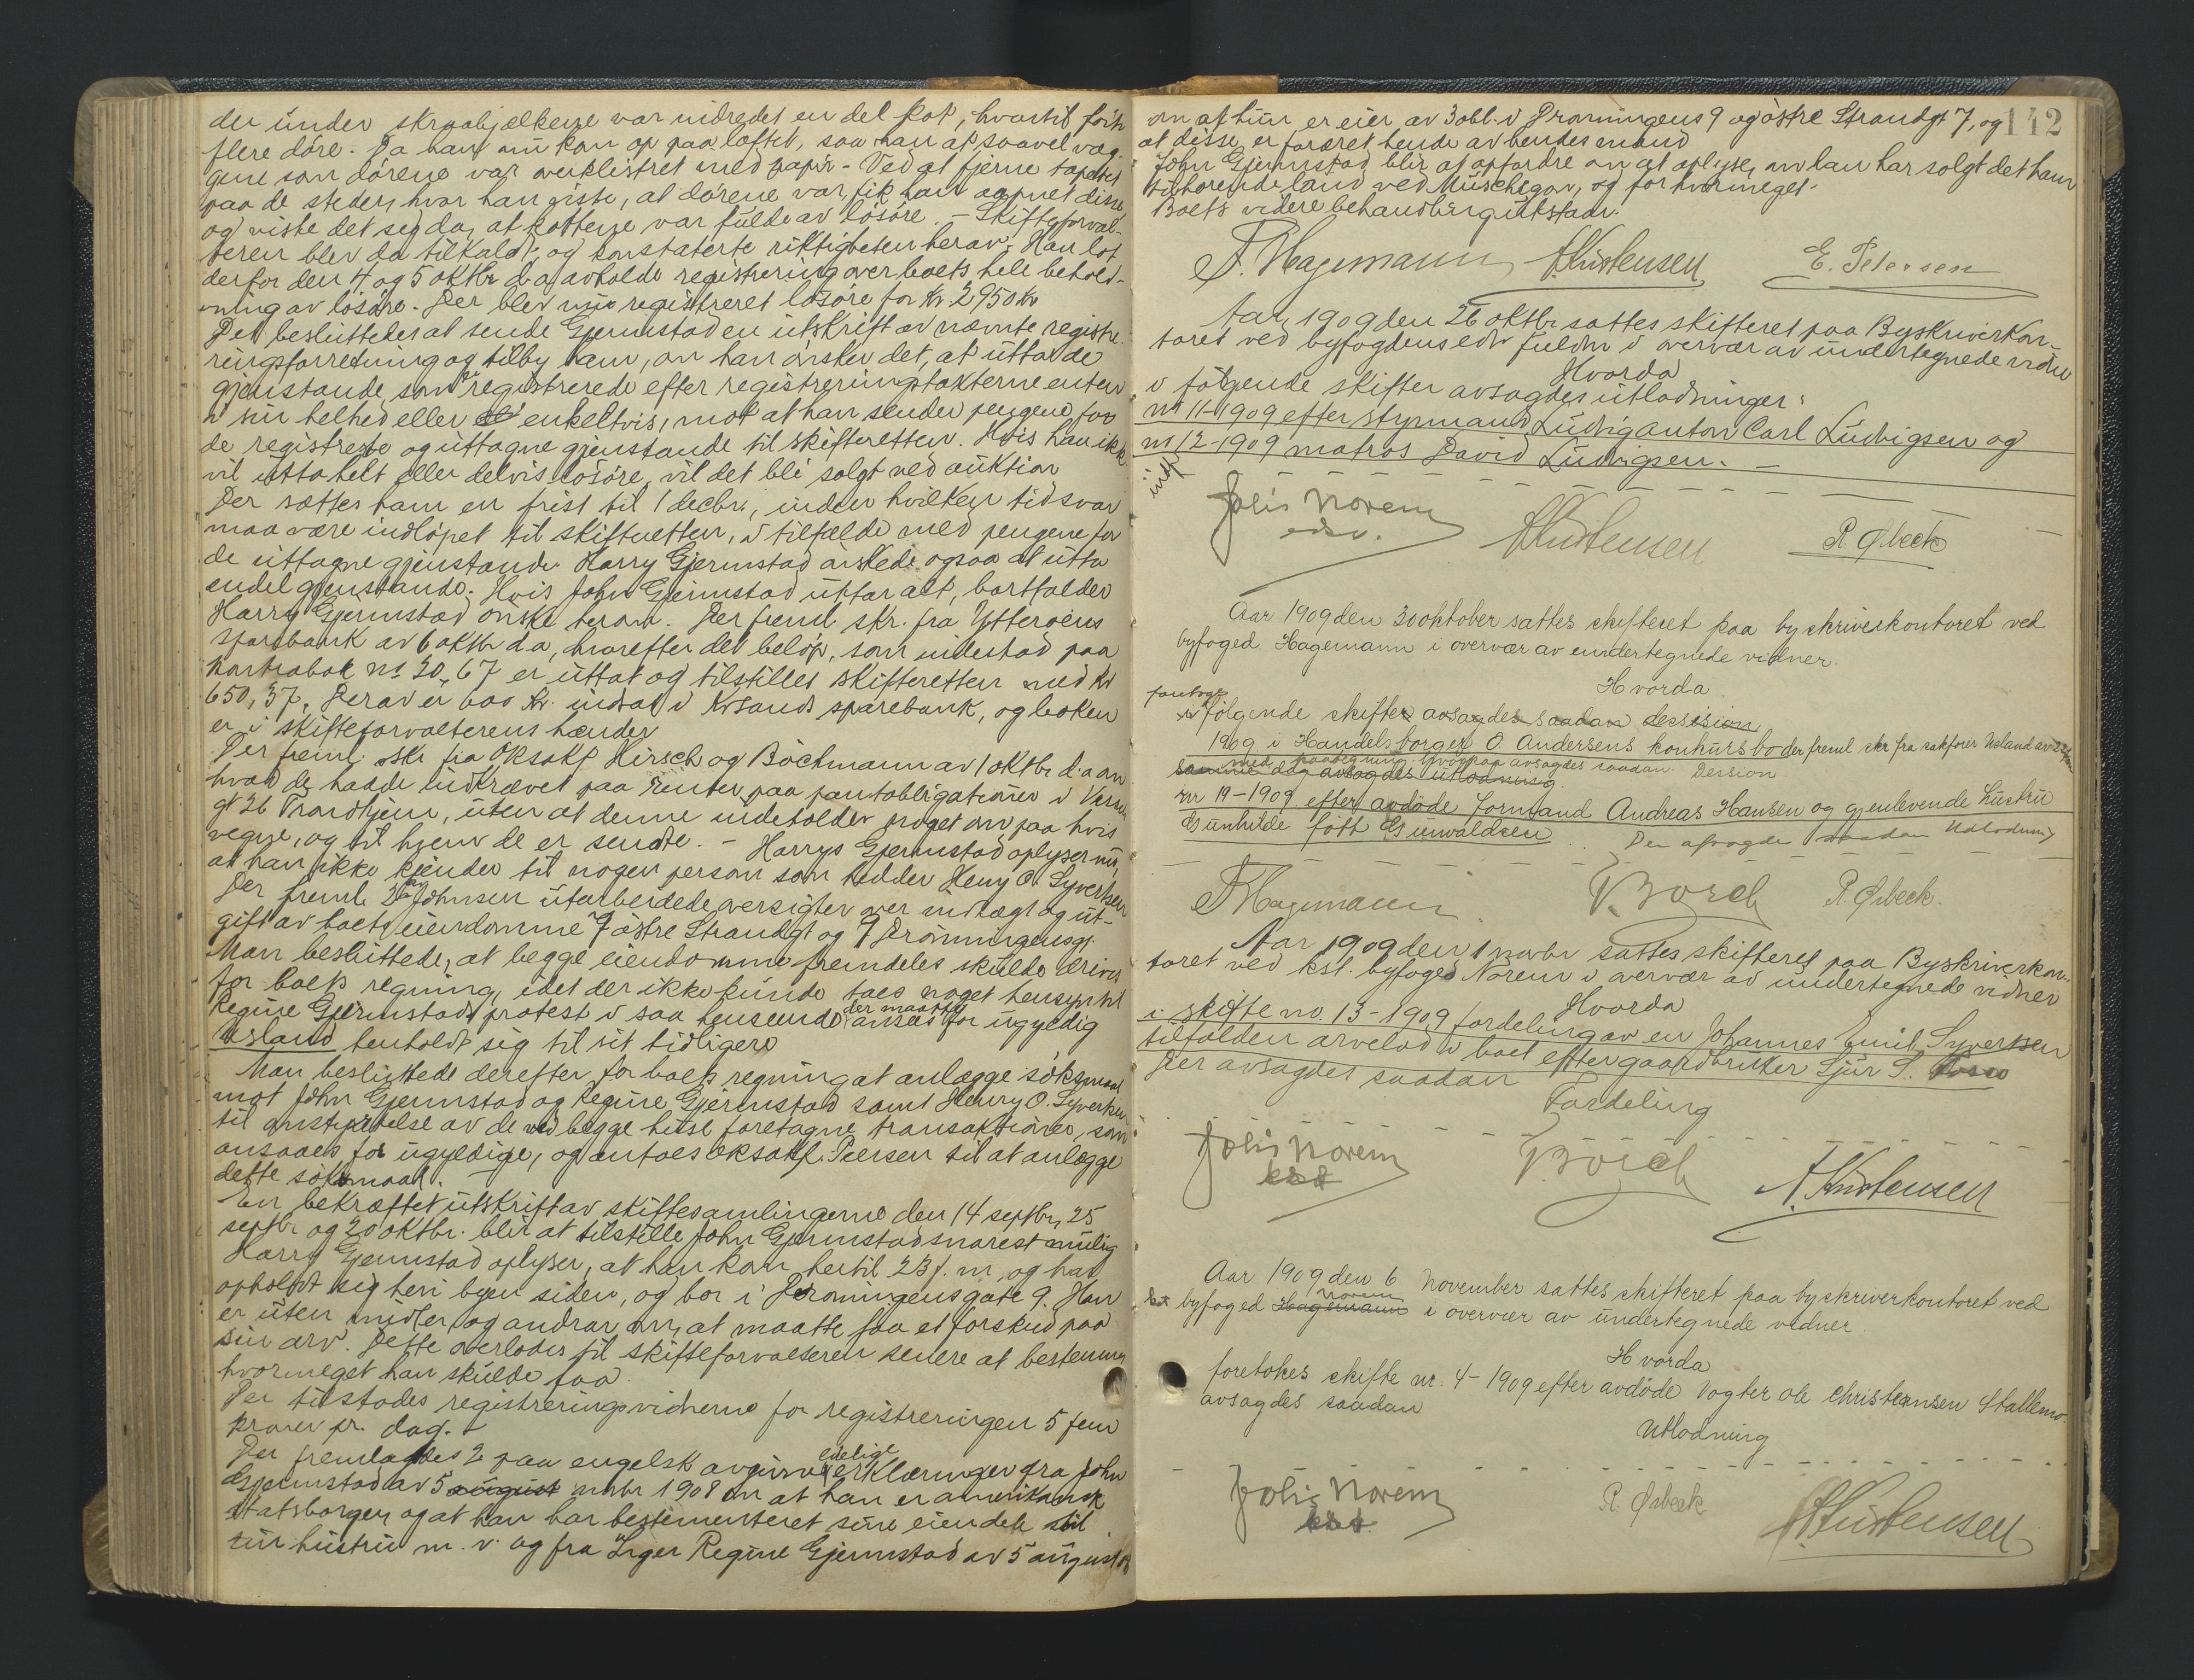 der under skraabjælkene var indredet en del kot, hvortil førte
flere døre. Da han nu kom op paa loftet, saa han at saavel væg-
gene som dørene var overklistret med papir - Ved at fjerne tapetet
paa de steder, hvor han visste, at dørene var, fik han aapnet disse
og viste det seg da, at kottene var fulde av løsøre. - Skifteforval-
teren blev da tilkaldt, og konstaterte riktigheten herav. Han lot
derfor den 4 og 5 oktbr d.a. avholde registrering over boets hele behold-
ning av løsøre. Der blev nu registreret løsøre for kr 2950 kr
Det besluttedes at sende Gjermstad en utskrift av nævnte registre-
ringsforretning og tilby ham, om han ønsker det, at utta de
gjenstande, som er registrerede efter registreringstaxterne enten
i sin helhed eller enkeltvis, mot at han sender pengene for
de registrerte og uttagne gjenstande til skifteretten. Hvis han ikke
vil utta helt eller delvis løsøre, vil det bli solgt ved auktion
Der sættes ham en frist til 1 decbr., inden hvilken tid svar
maa være indløpet til skifteretten, i tilfælde med pengene for
de uttagne gjenstande. Harry Gjermstad ønskede ogsaa at utta
endel gjenstande. Hvis John Gjermstad uttar alt, bortfalder
Harry Gjermstad ønske herom. Der freml. skr. fra Ytterøens
sparebank av 6 oktbr d.a., hvorefter det beløp, som indestod paa
kontrabok no 20,67 er uttat og tilstillet skifteretten med kr
650,37. Herav er 600 kr. indsat i Krsands sparebank, og boken
er i skifteforvalterens hænder
Der freml. skr. fra Oksakf Hirsch og Bochmann av 1 oktbr d.a. om
hvad de hadde indkrævet paa renter paa pantobligationer i
gt 26 Trondhjem, uten at denne indeholder noget om paa hvis
vegne, og til hvem de er sendte. - Harry Gjermstad oplyser nu,
at han ikke kjender til nogen person som hedder Henry O. Syvertsen
Der freml. Johnsen utarbeidede oversigter over indtægt og ut-
gift av boets eiendomme 7 østre Strandgt og 9 Dronningensgt.
Man besluttede, at begge eiendomme fremdeles skulde drives
for boets regning, idet der ikke kunde taes noget hensyn til
Regine Gjermstads protest i saa henseende der maatte ansees for ugyldig
Usland henholdt sig til sit tidligere
Man besluttede derefter for boets regning at anlægge søksmaal
mot John Gjermstad og Regine Gjermstad samt Henry O. Syvertsen
til omstyrtelse av de ved begge disse foretagne transaktioner, som
ansaaes for ugyldige, og antoes oksakf. Peersen til at anlægge
dette søksmaal.
En bekræftet utskrift av skiftesamlingerne den 14 septbr, 25
septbr og 20 oktbr. blir at tilstille John Gjermstad snarest mulig
Harry Gjermstad oplyser, at han kom hertil 23 f. m. og har
opholdt sig heri byen siden, og bor i Dronningensgate 9. Han
er uten midler og andrar om, at maatte faa et forskud paa
sin arv. Dette overlodes til skifteforvalteren senere at bestemme
hvormeget han skulde faa.
Der tilstodes registreringsvidnerne for registreringen 5 fem
kroner pr. dag.
Der fremlagdes 2 paa engelsk avgivne edelige erklæringer fra John
Gjermstad av 5 august novbr 1908 om at han er amerikansk
statsborger, og at han har bestemmt sine eiendele til
sin hustru m. v. og fra Inger Regine Gjermstad av 5 august 08
142
om at hun er eier av 3 obl. i Dronningens 9 og østre Strandgt 7, og
at disse er foræret hende av hendes mand
John Gjermstad blir at opfordre om at oplyse, om han har solgt det ham
tilhørende land ved Muskegon, og for hvormeget.
Boets videre behandling utstaar.
F. Hagemann AKristensen E. Petersen
Aar 1909 den 26 oktbr sattes skifteret paa Byskriverkon-
toret ved byfogdens edsv fuldm i overvær av undertegnede vidner
Hvorda
i følgende skifter avsagdes utlodninger:
no 11-1909 efter styrmand Ludvig Anton Carl Ludvigsen og
no 12-1909 matros David Ludvigsen. -
Johs Norem
edsv.
AKristensen R Ørbeck
Aar 1909 den 30 oktober sattes skifteret paa byskriverkontoret ved
byfoged Hagemann i overvær av undertegnede vidner.
Hvorda
foretoges
i følgende skifter avsagdes saadan decision
1909 i Handelsborger O. Andersens konkursbo der freml skr fra sakfører Usland av
med paategning. hvorpaa avsagdes saadan Decsion
samme dag avsagdes utlodning
nr 19-1909 efter avdøde formand Andreas Hansen og gjenlevende hustru
Gunhilde født Gunvaldsen Der afsagdes saadan Utlodning
F Hagemann. Borch R. Ørbeck.
Aar 1909 den 1 novbr sattes skifteret paa Byskriverkon-
toret ved kst. byfoged Norem i overvær av undertegnede vidner
Hvorda
i skifte no. 13-1909 fordeling av en Johannes Emil Syvertsen
tilfalden arvelod i boet efter gaardbruker Sjur S.
Der avsagdes saadan
Fordeling
Johs Norem
kst
Borch
A. Kristensen
Aar 1909 den 6 november sattes skifteret paa byskriverkontoret ved
kst byfoged Hagemann Norem i overvær av undertegnede vidner
Hvorda
foretokes skifte nr. 4-1909 efter avdøde Vogter Ole Christensen Stallemo
avsagdes saadan
Utlodning
Johs Norem
kst
R. Ørbeck AKristensen